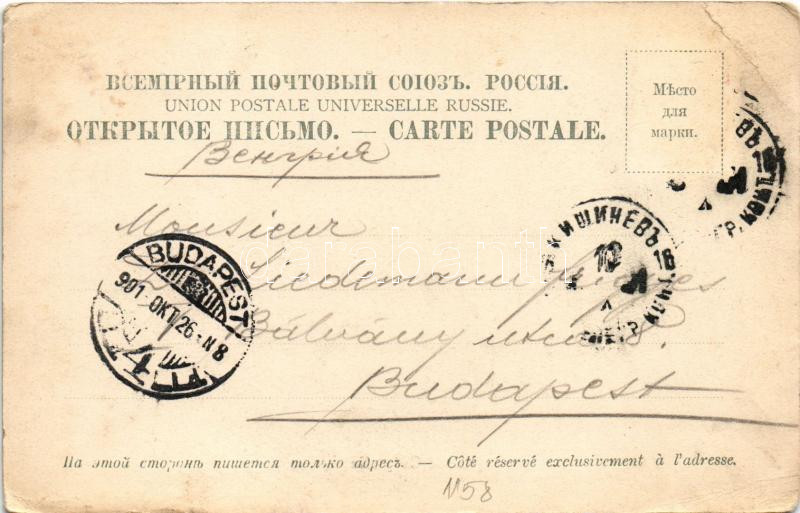 ВСЕМІРНЫЙ ПОЧТОВЫЙ СОЮЗЪ. РОССІЯ.
UNION POSTALE UNIVERSELLE RUSSIE.
ОТКРЫТОЕ ПИСЬМО. — CARTE POSTALE.
Мѣсто
для
марки.
Венгрия
Monsieur
Liedemann
Bálvány utca 8.
Budapest
КИШИНЕВЪ
18
10
BUDAPEST
901 OKT 26 N8
На этой сторонѣ пишется только адресъ. — Côté réservé exclusivement à l'adresse.
N58
darabanth